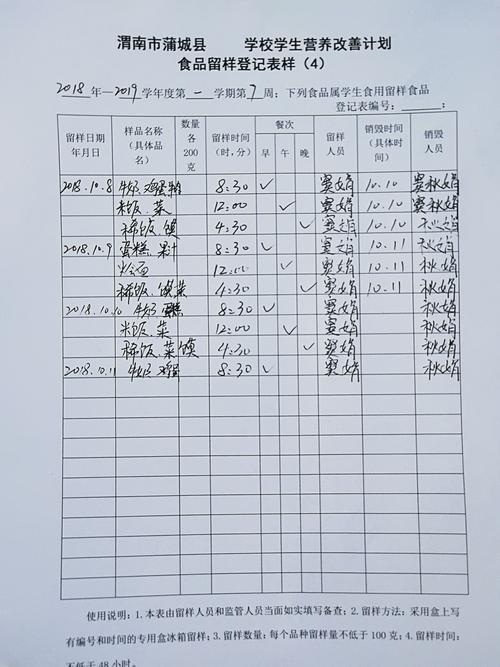 渭南市蒲城县 学校学生营养改善计划
食品留样登记表样（4）
2018年—2019学年度第一学期第7周：下列食品属学生食用留样食品
登记表编号：______：
留样日期 年月日 样品名称（具体品名） 数量各200克 留样时间（时，分） 餐次 早 午 晚 留样人员 销毁时间（具体时间） 销毁人员
2018.10.8 牛奶 鸡蛋 8:30 ✓ 窦娟 10.10 窦秋娟
米饭.菜 12:00 ✓ 窦娟 10.10 窦秋娟
稀饭 馍 4:30 ✓ 窦娟 10.10 秋娟
2018.10.9 蛋糕 果汁 8:30 ✓ 窦娟 10.11 秋娟
12:00 ✓ 窦娟 10.11 秋娟
稀饭.馍菜 4:30 ✓ 窦娟 10.11 秋娟
2018.10.10 牛奶 蛋糕 8:30 ✓ 窦娟 秋娟
米饭 菜 12:00 ✓ 窦娟 秋娟
稀饭 菜 馍 4:30 ✓ 窦娟 秋娟
2018.10.11 牛奶 鸡蛋 8:30 ✓ 窦娟 秋娟
使用说明：1.本表由留样人员和监管人员当面如实填写备查；2.留样方法：采用盒上写
有编号和时间的专用盒冰箱留样；3.留样数量：每个品种留样量不低于100克；4.留样时间：
不低于48小时。